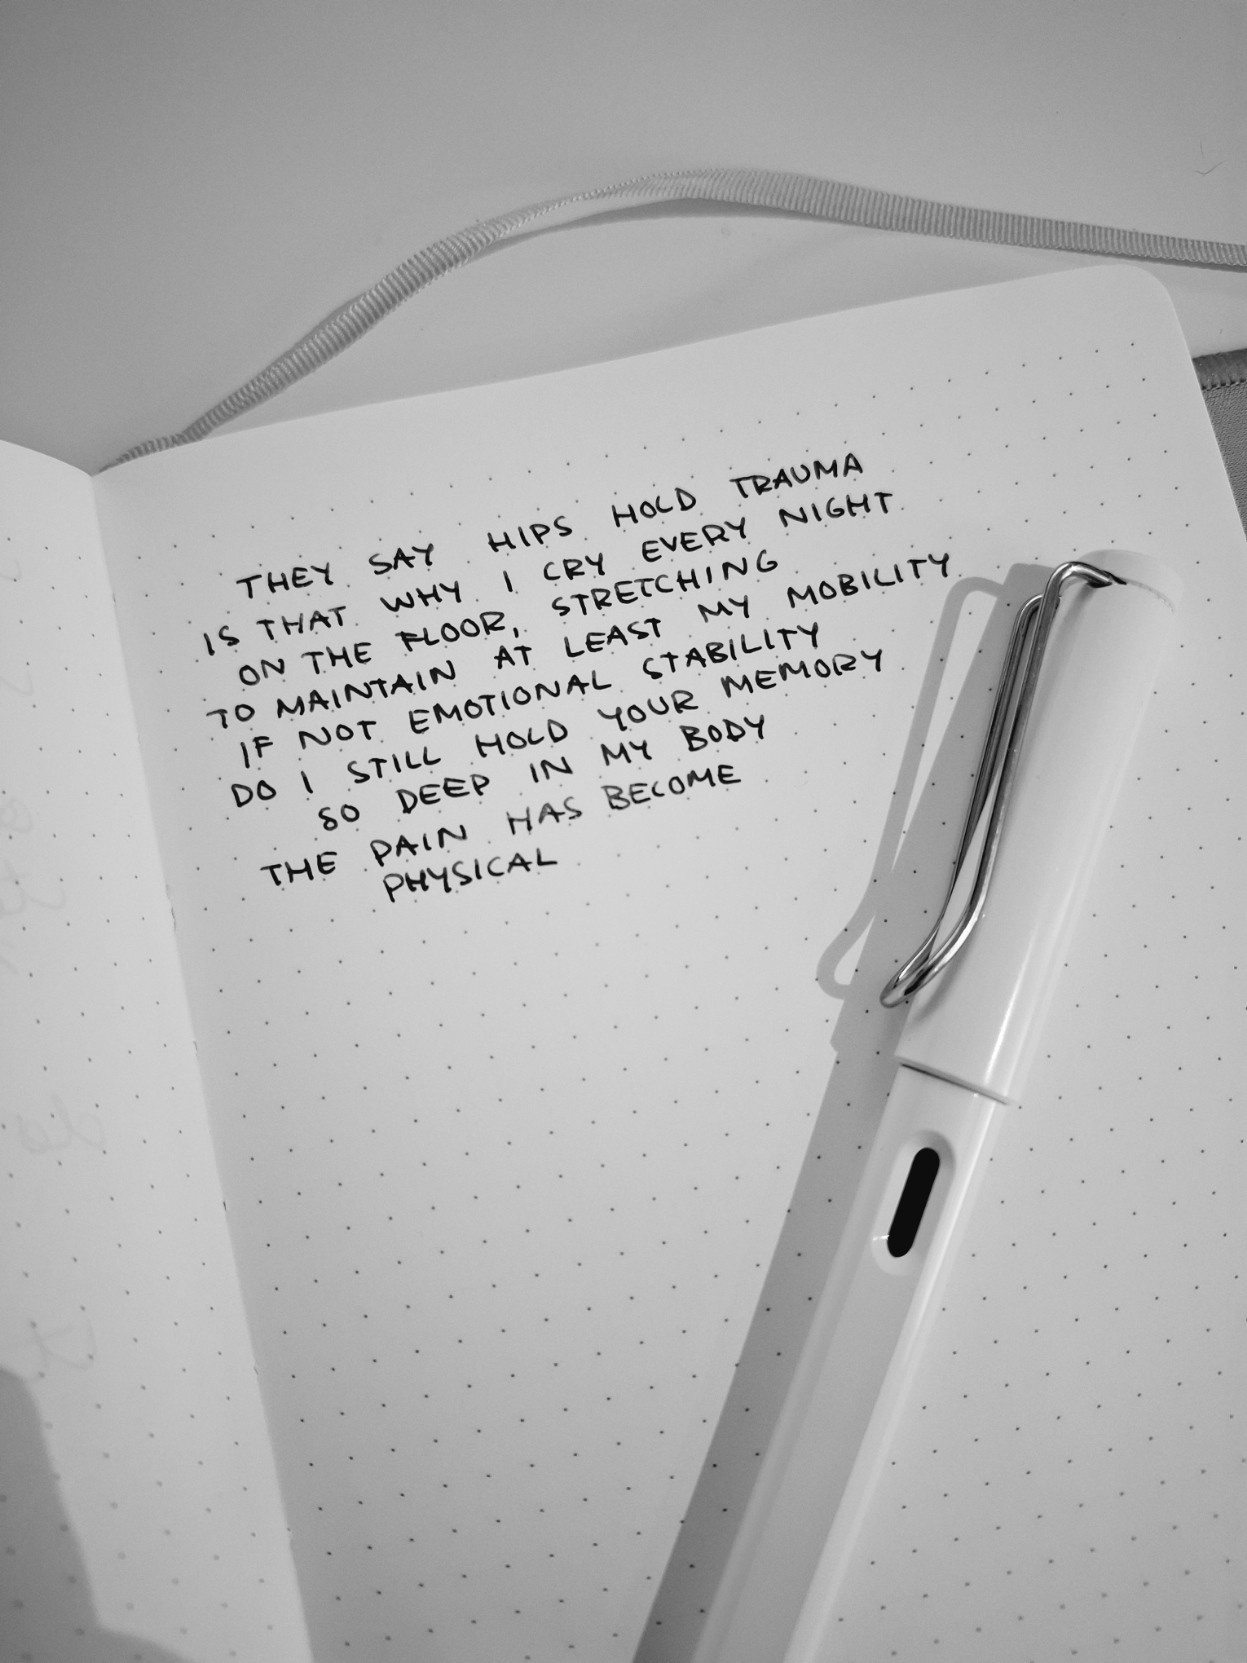 THEY SAY HIPS HOLD TRAUMA
IS THAT WHY I CRY EVERY NIGHT
ON THE FLOOR, STRETCHING
TO MAINTAIN AT LEAST MY MOBILITY
IF NOT EMOTIONAL STABILITY
DO I STILL HOLD YOUR MEMORY
SO DEEP IN MY BODY
THE PAIN HAS BECOME
PHYSICAL